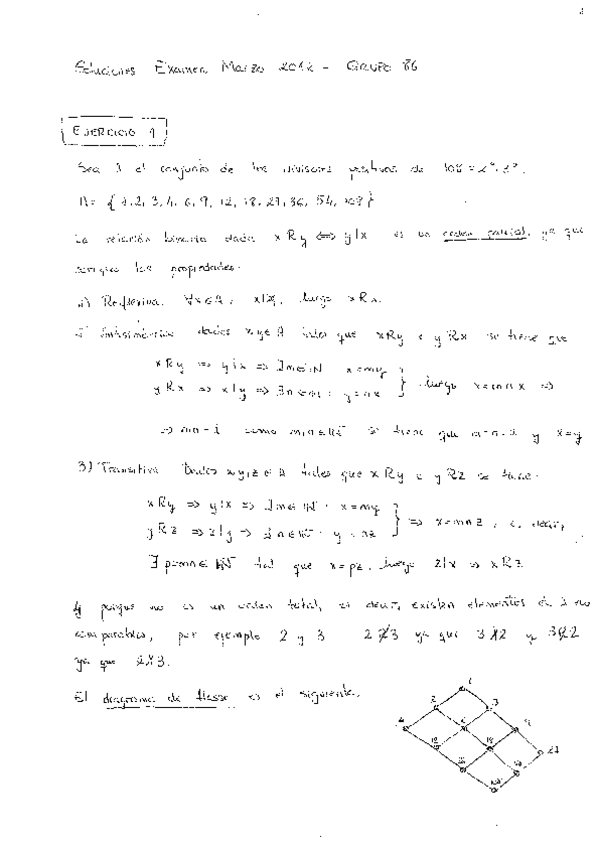 Soluciones Examen Marzo 2012 - GRUPO 86
EJERCICIO 1
Sea A el conjunto de los divisores positivos de 108 = 2². 3³.
A = { 1, 2, 3, 4, 6, 9, 12, 18, 27, 36, 54, 108 }
La relación binaria dada x R y ⟺ y|x es un orden parcial, ya que
las propiedades:
1) Reflexiva. ∀x∈A, x|x, luego xRx.
2) Antisimétrica dados x,y∈A tales que xRy e yRx se tiene que
xRy ⇒ y|x ⇒ ∃m∈ℕ x=my
yRx ⇒ x|y ⇒ ∃n∈ℕ : y=nx } luego x=mnx ⇒
⇒ mn=1 como m,n∈ℕ se tiene que m=n=1 y x=y
3) Transitiva Dados x,y,z∈A tales que xRy e yRz se tiene:
xRy ⇒ y|x ⇒ ∃m∈ℕ : x=my
yRz ⇒ z|y ⇒ ∃n∈ℕ : y=nz } ⇒ x=mnz, es decir,
∃ p=mn∈ℕ tal que x=pz, luego z|x ⇒ xRz
porque no es un orden total, es decir, existen elementos de A no
comparables, por ejemplo 2 y 3 2R̸3 ya que 3∤2 y 3R̸2
ya que 2∤3.
El diagrama de Hasse es el siguiente.
1
2 3
4 6 9
12 18 27
36
108